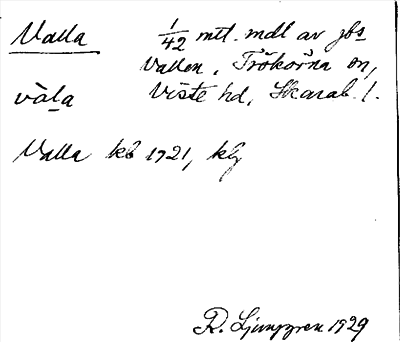 Valla 1/42 mtl. mdl av jbs
Vallen, Trökörna sn,
våla Viste hd, Skarab. l.
Valla kb 1921, klg
R. Ljunggren 1929